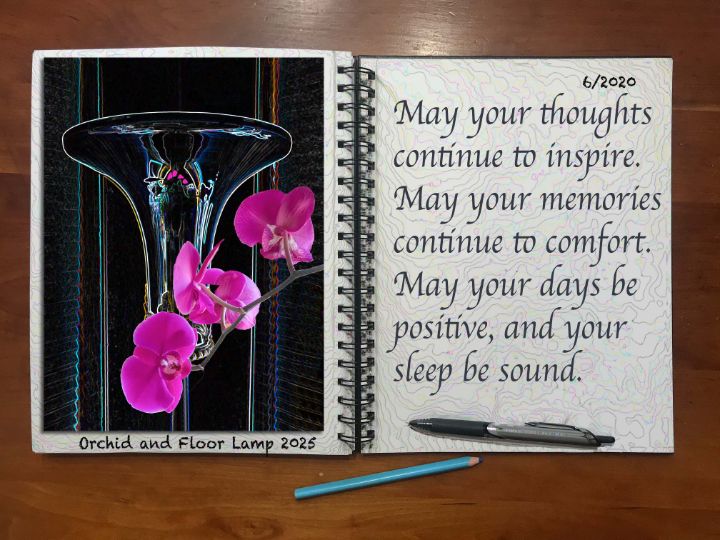 Orchid and Floor Lamp 2025
6/2020
May your thoughts
continue to inspire.
May your memories
continue to comfort.
May your days be
positive, and your
sleep be sound.